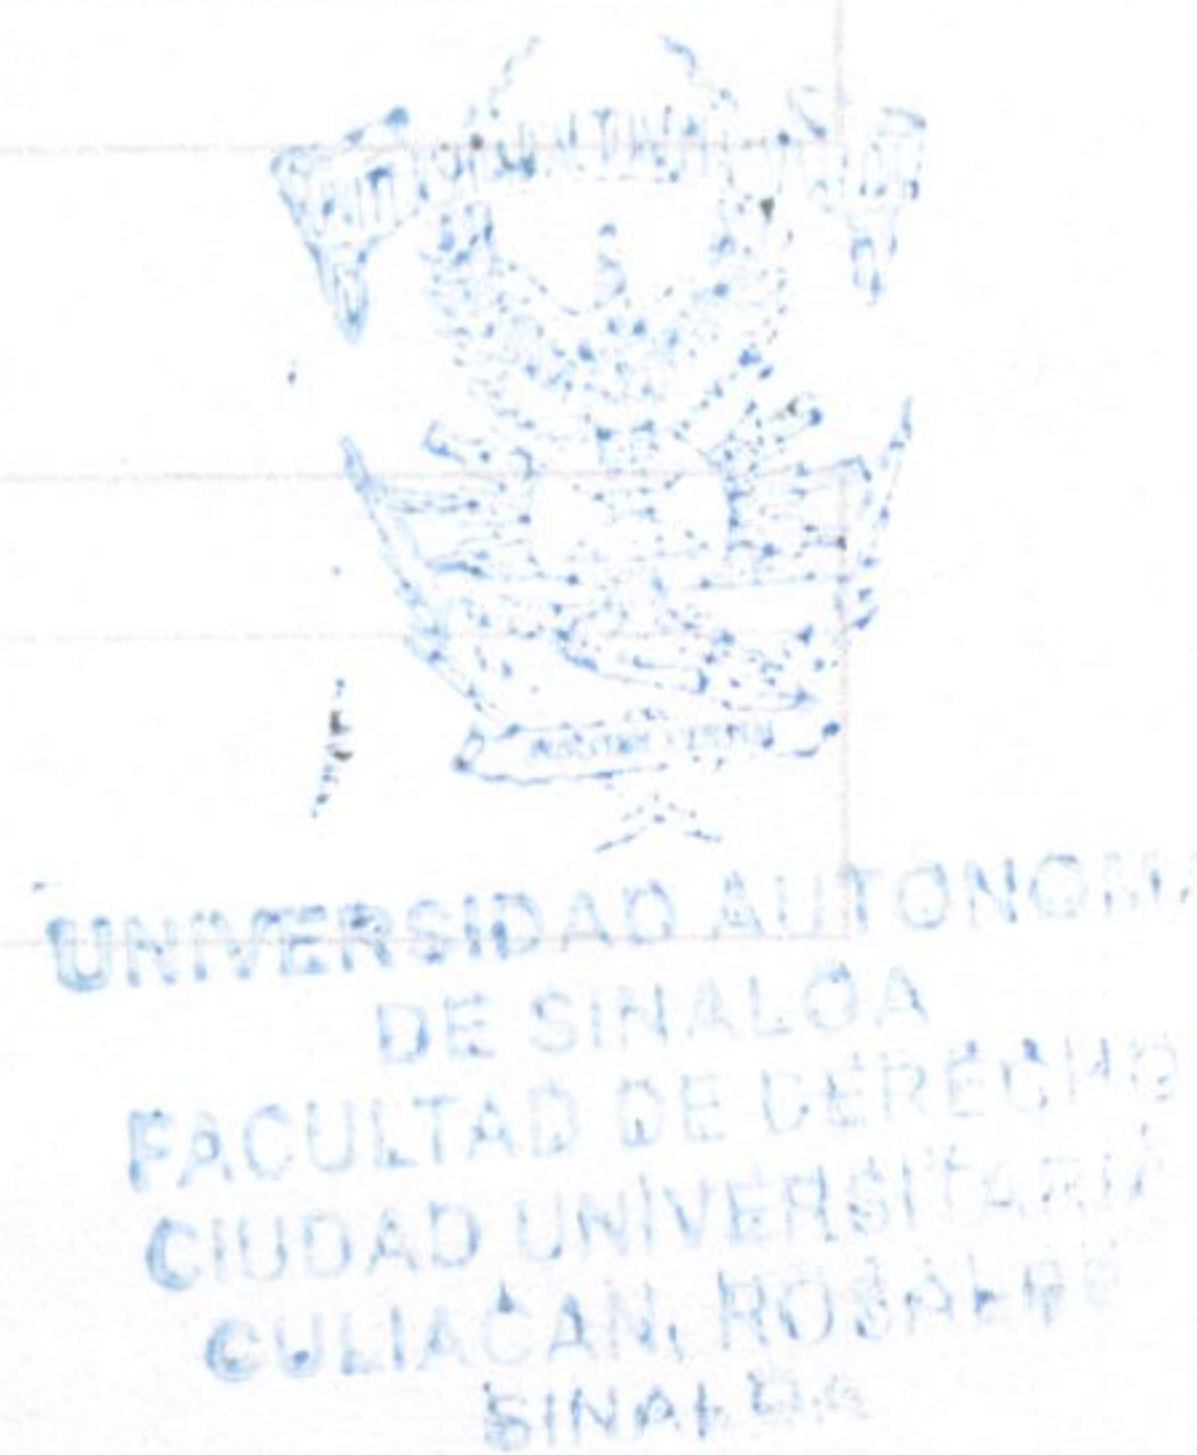 UNIVERSIDAD AUTONOMA
DE SINALOA
FACULTAD DE DERECHO
CIUDAD UNIVERSITARIA
CULIACAN, ROSALES
SINALOA